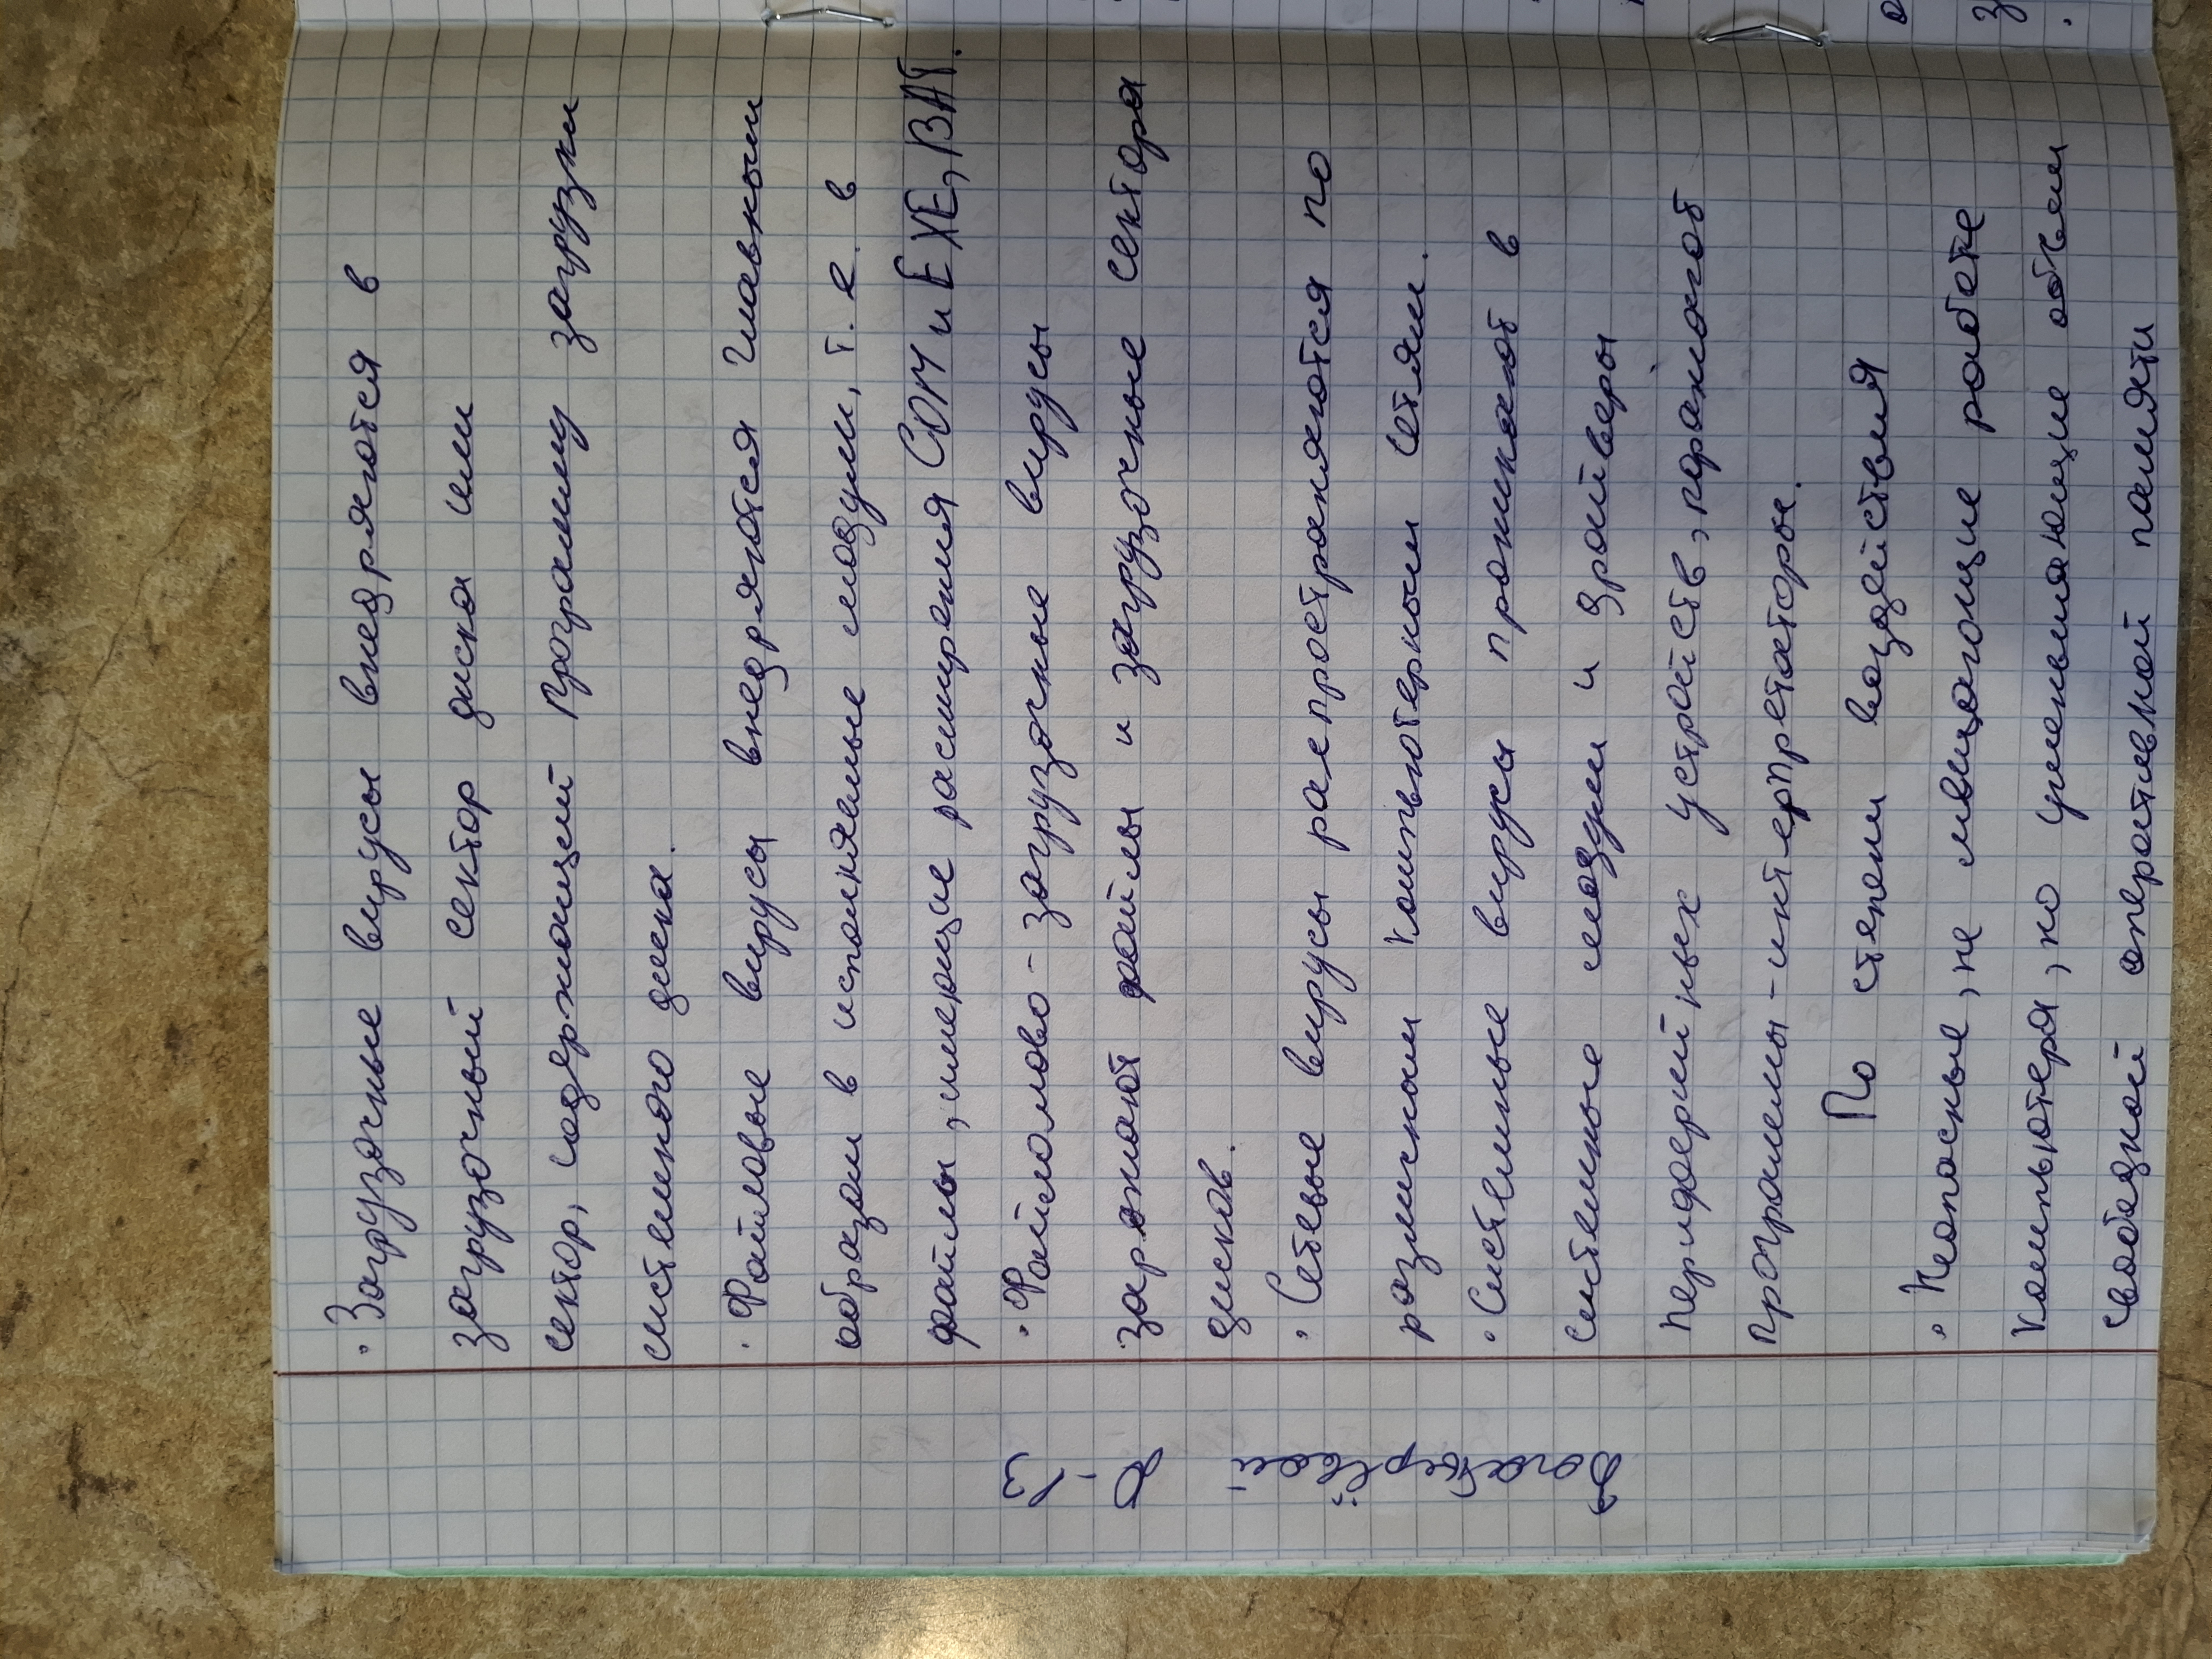 · Загрузочные вирусы внедряются в
загрузочный сектор диска или
сектор, содержащий программу загрузки
системного диска.
· Файловые вирусы внедряются главным
образом в исполняемые модули, т. е. в
файлы, имеющие расширения COM и EXE, BAT.
· Файлово-загрузочные вирусы
заражают файлы и загрузочные сектора
дисков.
· Сетевые вирусы распространяются по
различным компьютерным сетям.
· Системные вирусы проникают в
системные модули и драйверы
периферийных устройств, поражают
программы-интерпретаторы.
По степени воздействия
· Неопасные, не мешающие работе
компьютера, но уменьшающие объем
свободной оперативной памяти